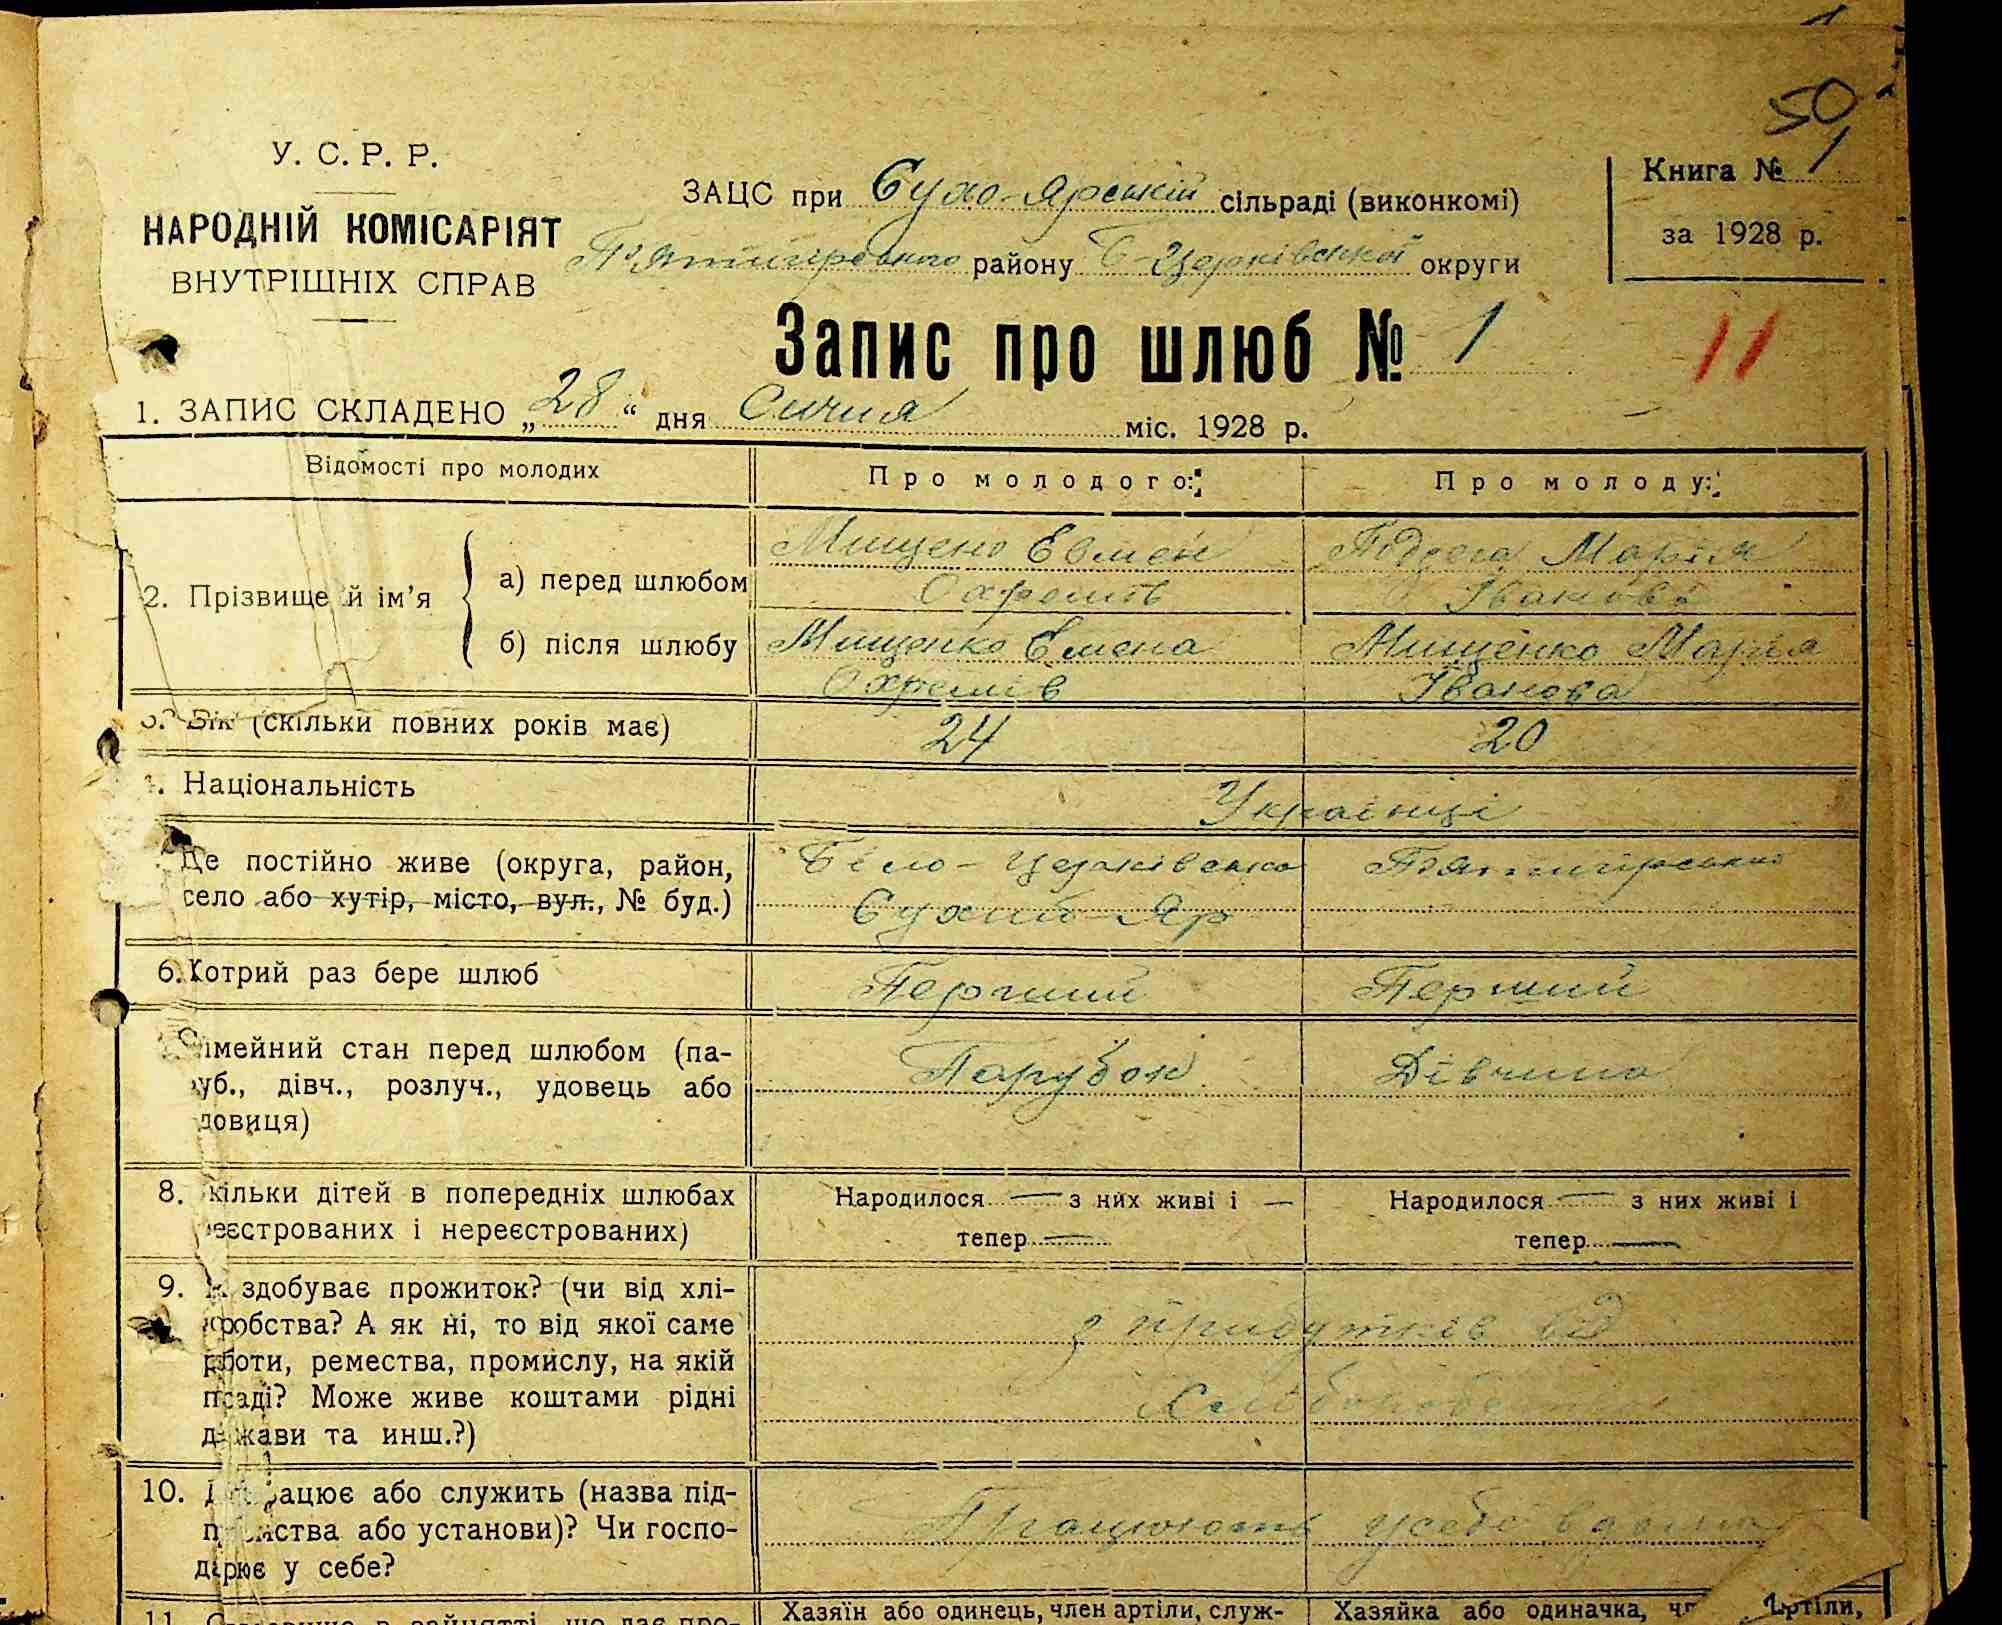 50
У. С. Р. Р.
НАРОДНІЙ КОМІСАРІЯТ
ВНУТРІШНІХ СПРАВ
ЗАЦС при Сухо-Ярській сільраді (виконкомі)
П'ятигірського району Б-Церківської округи
Книга № 1
за 1928 р.
Запис про шлюб № 1
11
1. ЗАПИС СКЛАДЕНО „28“ дня Січня міс. 1928 р.
Відомості про молодих
Про молодого:
Про молоду:
2. Прізвище й ім’я
а) перед шлюбом
Мищенко Евмен
Охремів
Марія
Іванова
б) після шлюбу
Мищенко Емена
Охремів
Мищенко Марія
Іванова
3. Вік (скільки повних років має)
24
20
Національність
Українці
Де постійно живе (округа, район,
село або хутір, місто, вул., № буд.)
Біло-Церківська П'ятигірський
Сухий Яр
6. Котрий раз бере шлюб
Перший
Перший
імейний стан перед шлюбом (па-
уб., дівч., розлуч., удовець або
довиця)
Парубок
Дівчина
8. кільки дітей в попередніх шлюбах
еєстрованих і нереєстрованих)
Народилося — з них живі і —
тепер —
Народилося — з них живі і
тепер —
9. здобуває прожиток? (чи від хлі-
робства? А як ні, то від якої саме
роботи, ремества, промислу, на якій
посаді? Може живе коштами рідні
держави та инш.?)
з прибутків від
10. рацює або служить (назва під-
приємства або установи)? Чи госпо-
дарює у себе?
Працюють у себе вдома
11.
Хазяїн або одинець, член артіли, служ-
Хазяйка або одиначка, артіли,